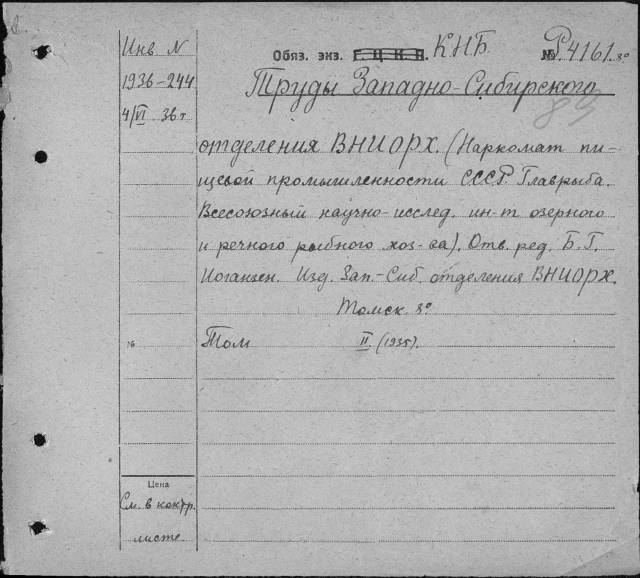 Инв N
1936-244
4/VI 36 г
Обяз. экз. Г.Ц.К.П. КНБ № Р4161.8°
Труды Западно-Сибирского
89
отделения ВНИОРХ. (Наркомат пи-
щевой промышленности СССР. Главрыба.
Всесоюзный научно-исслед. ин-т озерного
и речного рыбного хоз-ва). Отв. ред. Б. Г.
Иоганзен. Изд. Зап.-Сиб. отделения ВНИОРХ.
Томск. 8°
№ Том II. (1935).
Цена
См. в контр.
листе.